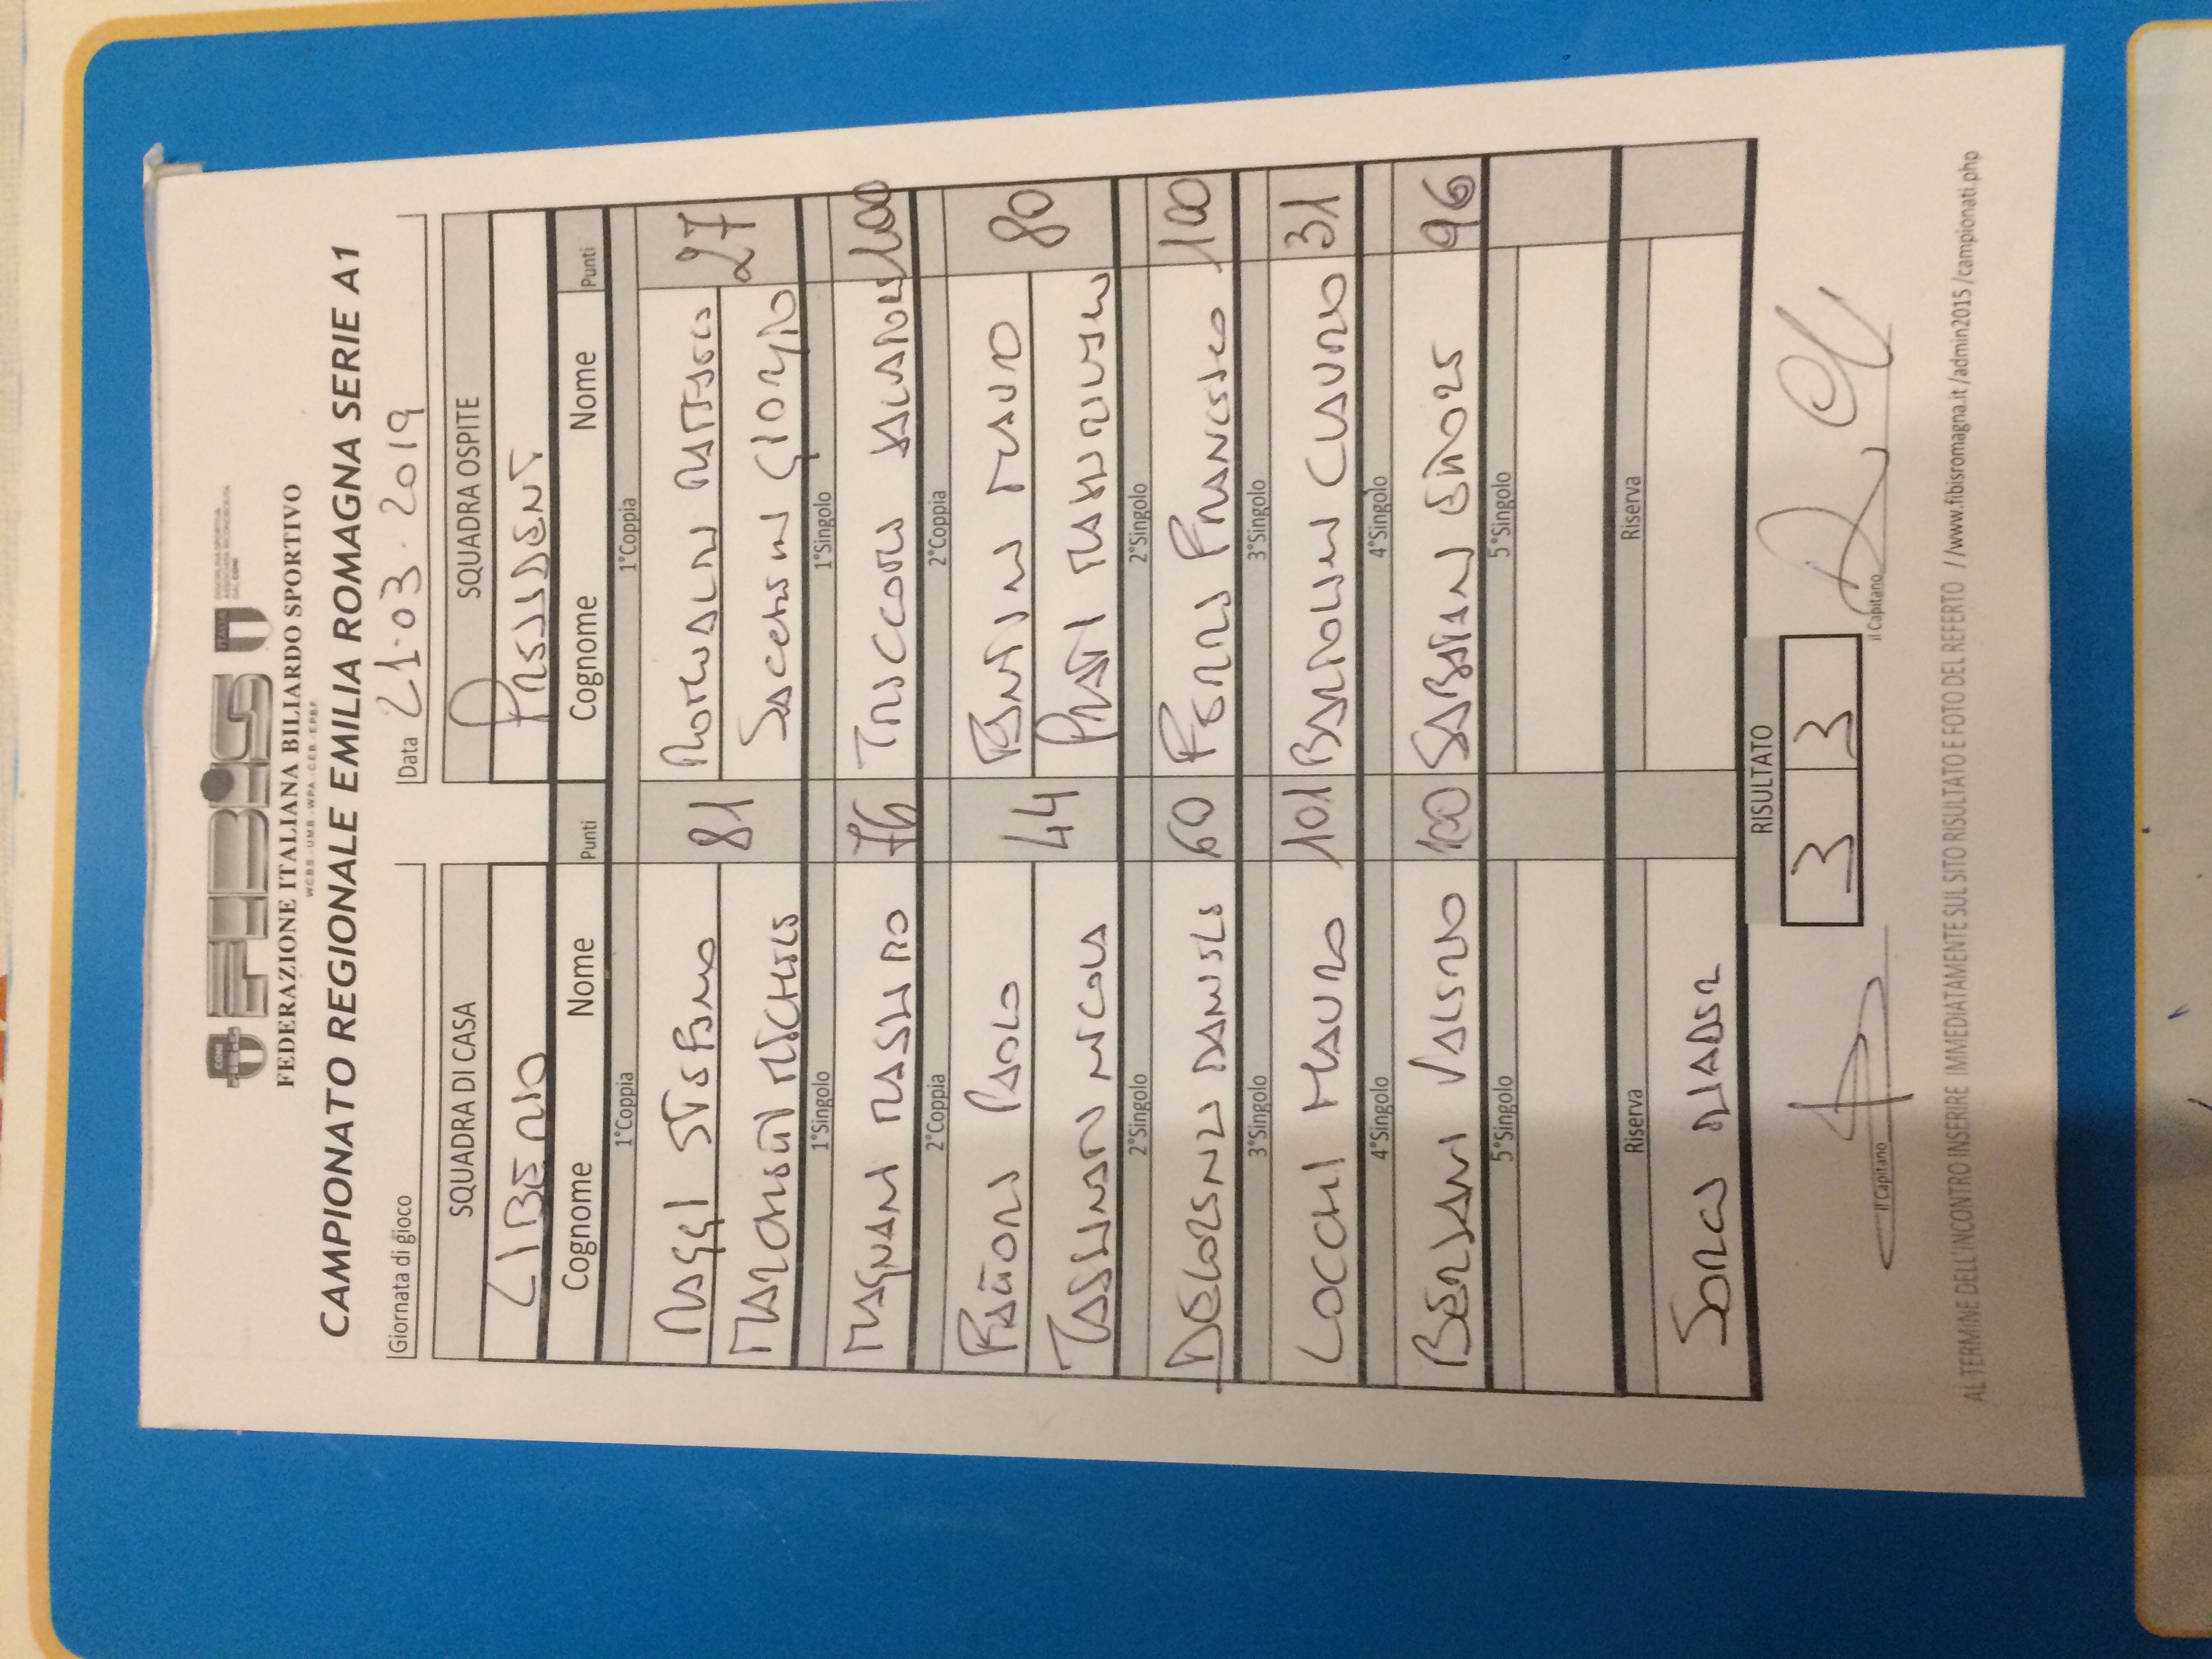 FIBiS
FEDERAZIONE ITALIANA BILIARDO SPORTIVO
W.C.B.S. - U.M.B. - W.P.A. - C.E.B. - E.P.B.F.
CAMPIONATO REGIONALE EMILIA ROMAGNA SERIE A1
Giornata di gioco Data 21.03.2019
SQUADRA DI CASA SQUADRA OSPITE
LIBERIO PRESIDENT
Cognome Nome Punti Cognome Nome Punti
1°Coppia 1°Coppia
MAGGI STEFANO 81 27
MICHELE SACCHETTI GIORGIO
1°Singolo 1°Singolo
MAGNANI MASSIMO 76 100
2°Coppia 2°Coppia
PAOLO 44 FANTINI 80
TASSINARI NICOLA PRATI
2°Singolo 2°Singolo
DELORENZI DANIELE 60 FRANCESCO 100
3°Singolo 3°Singolo
LOCCHI MAURO 101 BARTOLINI LAURO 31
4°Singolo 4°Singolo
BENZANI VALERIO 100 SABATTANI 96
5°Singolo 5°Singolo
Riserva Riserva
RISULTATO
3 3
il Capitano il Capitano
AL TERMINE DELL'INCONTRO INSERIRE IMMEDIATAMENTE SUL SITO RISULTATO E FOTO DEL REFERTO //www.fibisromagna.it /admin2015 /campionati.php